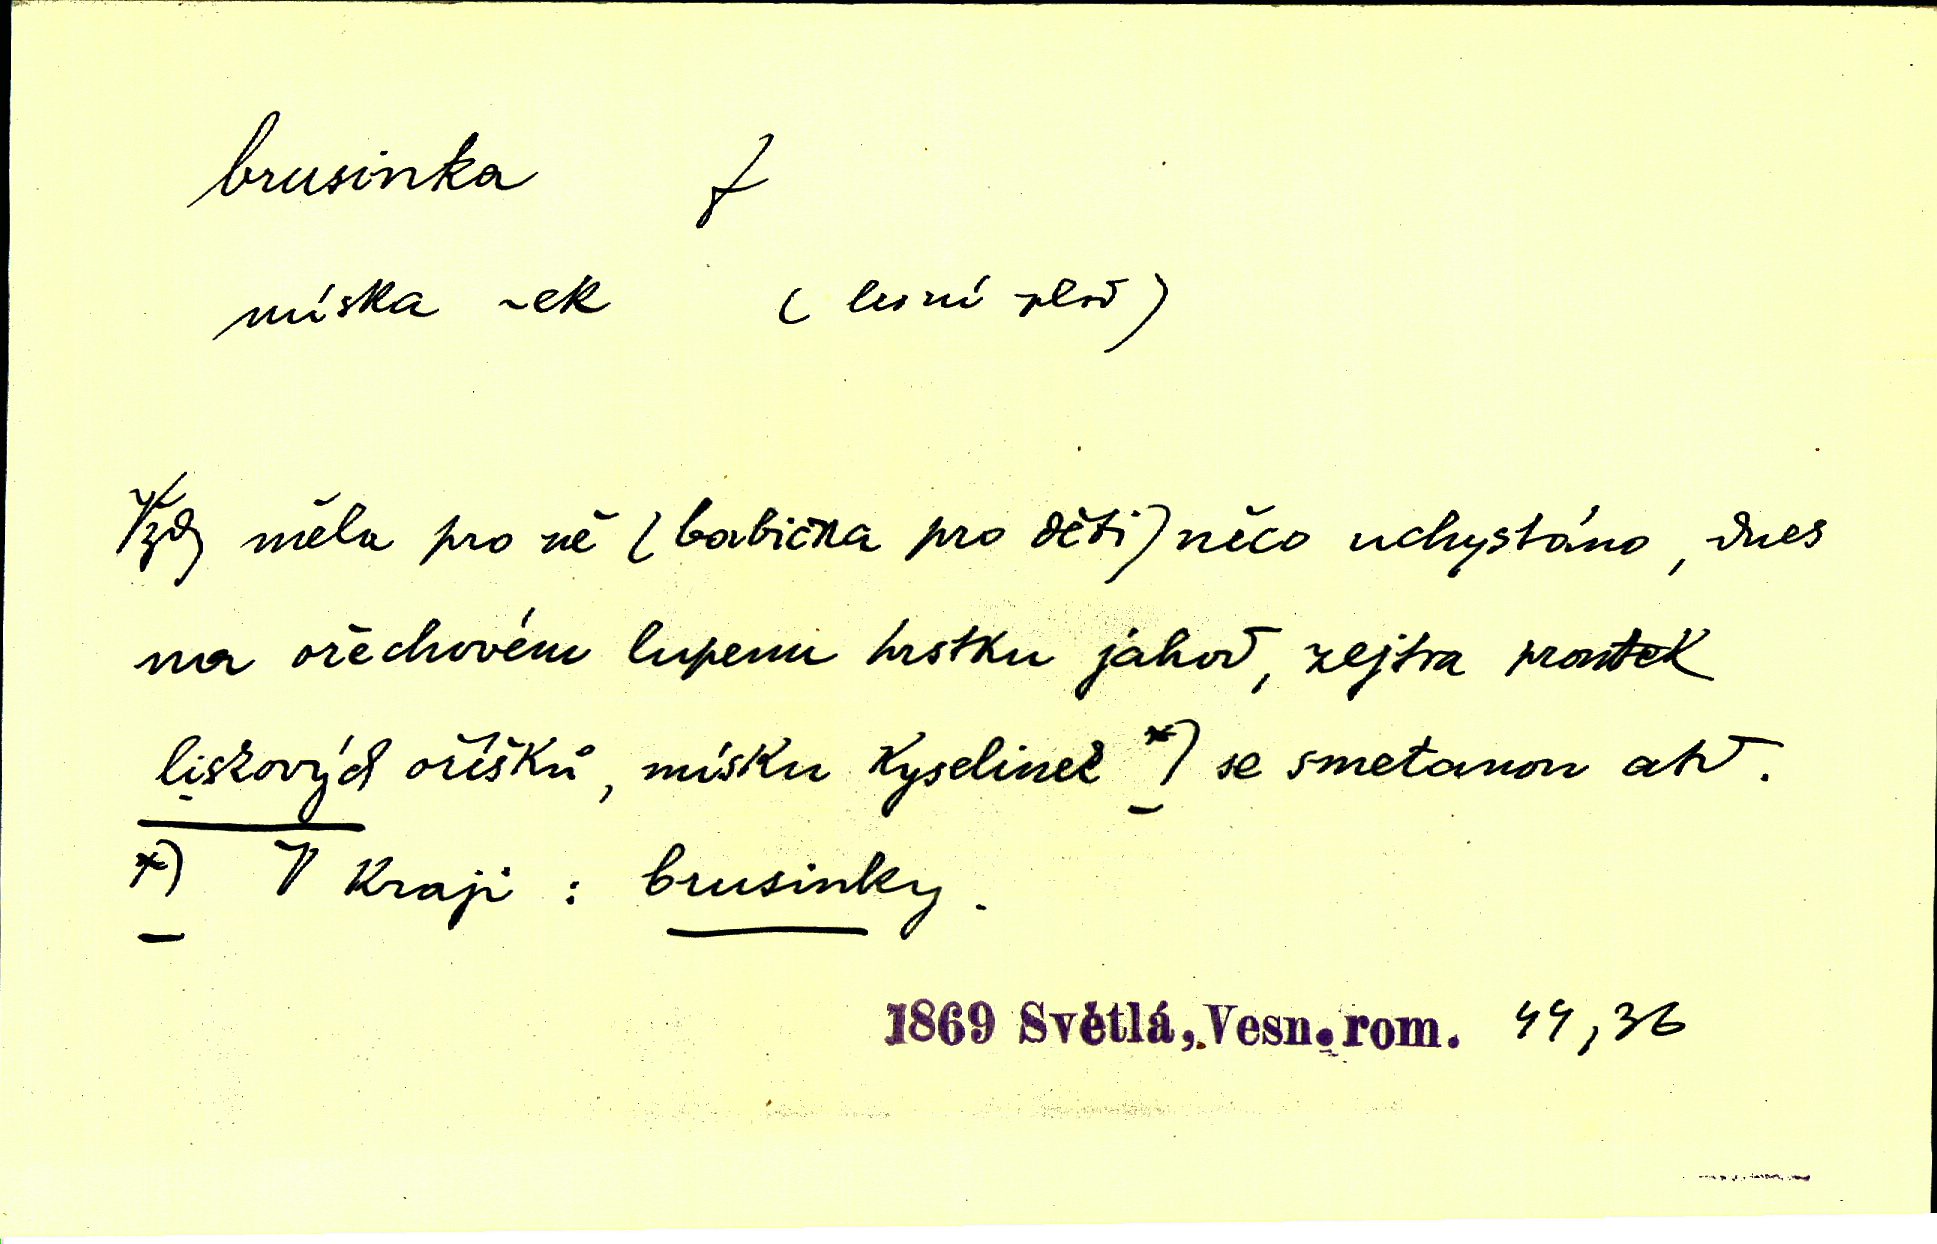 brusinka f
míska ~ek (lesní plod)
Vždy měla pro ně (babička pro děti) něco uchystáno, dnes
na ořechovém lupenu hrstku jahod, zejtra proutek
lískových oříšků, mísku kyselinek *) se smetanou atd.
*) V kraji : brusinky.
1869 Světlá, Vesn. rom. 44,36